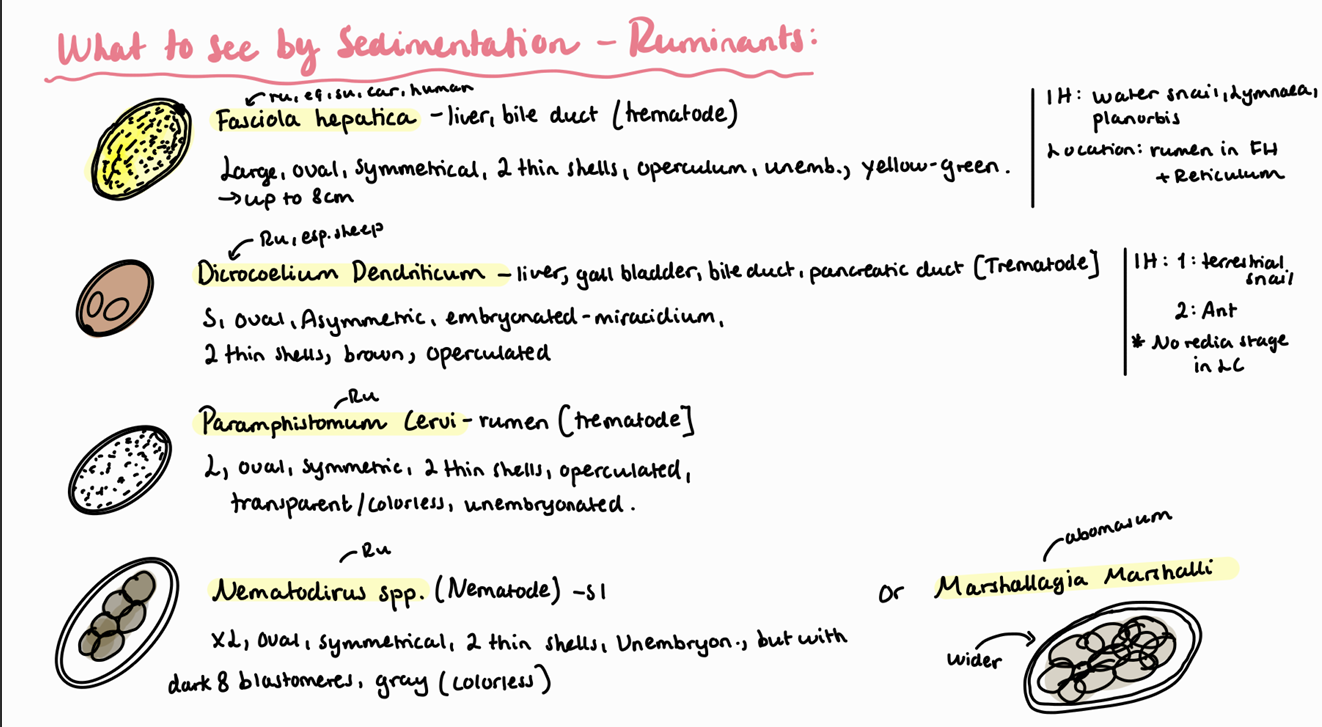 What to see by Sedimentation - Ruminants:
ru, eq, su, car, human
Fasciola hepatica - liver, bile duct (trematode)
Large, oval, symmetrical, 2 thin shells, operculum, unemb., yellow-green.
→ up to 8cm
IH: water snail, Lymnaea,
planorbis
Location: rumen in FH
+ Reticulum
Ru, esp. sheep
Dicrocoelium Dendriticum - liver, gall bladder, bile duct, pancreatic duct [Trematode]
S, oval, Asymmetric, embryonated-miracidium,
2 thin shells, brown, operculated
IH: 1: terrestrial
snail
2: Ant
* No redia stage
in LC
Ru
Paramphistomum Cervi - rumen [trematode]
L, oval, symmetric, 2 thin shells, operculated,
transparent/colorless, unembryonated.
Ru
Nematodirus spp. (Nematode) - SI
XL, oval, symmetrical, 2 thin shells, Unembryon., but with
dark 8 blastomeres, gray (colorless)
abomasum
Or Marshallagia Marshalli
wider